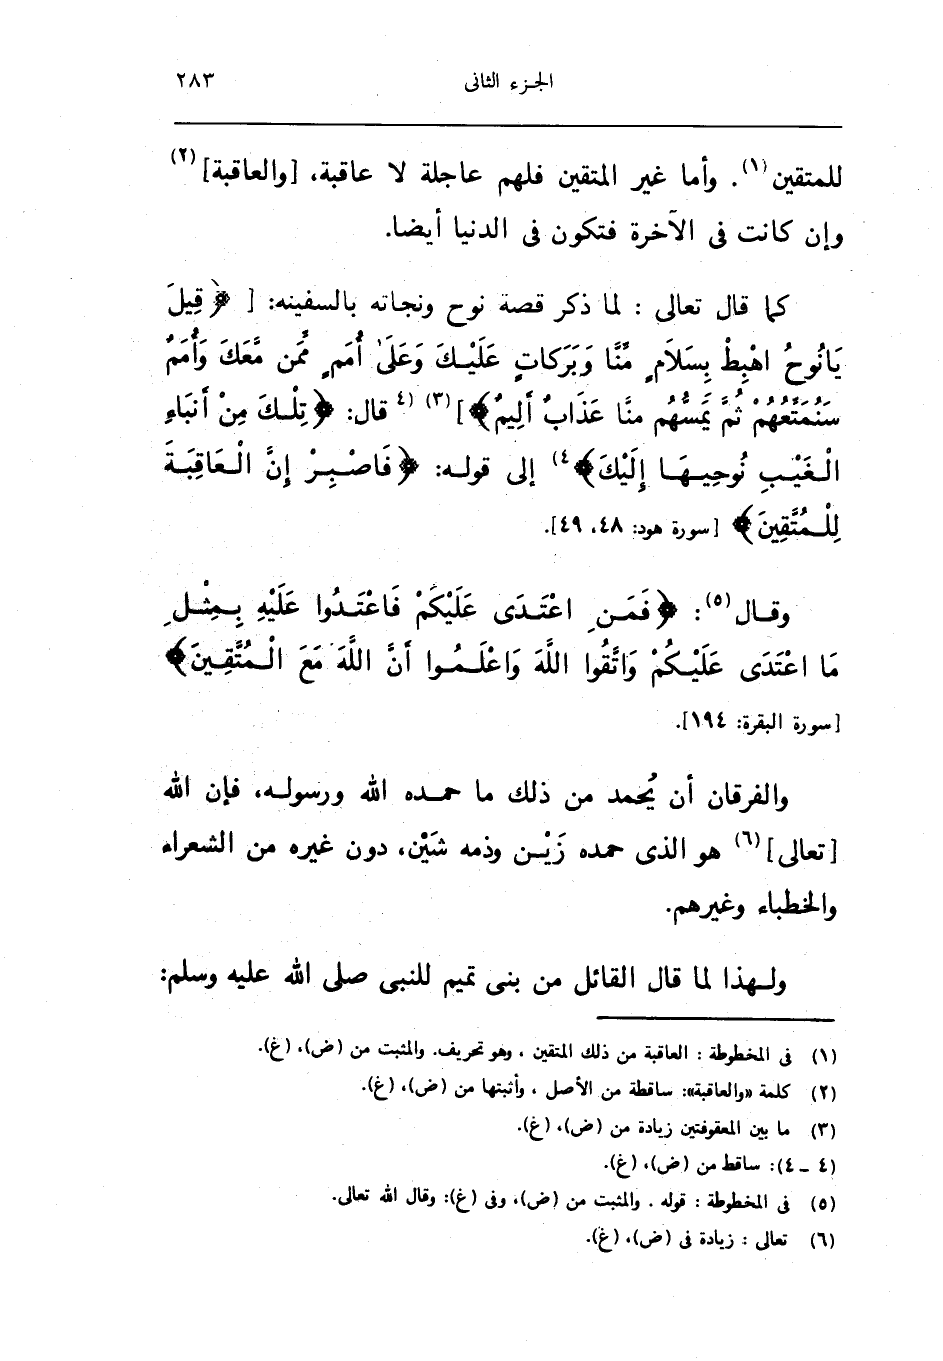 الجزء الثانى ٢٨٣
للمتقين(١). وأما غير المتقين فلهم عاجلة لا عاقبة، [والعاقبة](٢)
وإن كانت فى الآخرة فتكون فى الدنيا أيضا.
كما قال تعالى : لما ذكر قصة نوح ونجاته بالسفينه: [ ﴿قِيلَ
يَانُوحُ اهْبِطْ بِسَلَامٍ مِّنَّا وَبَرَكَاتٍ عَلَيْكَ وَعَلَىٰ أُمَمٍ مِّمَّن مَّعَكَ وَأُمَمٌ
سَنُمَتِّعُهُمْ ثُمَّ يَمَسُّهُم مِنَّا عَذَابٌ أَلِيمٌ﴾](٣) (٤ قال: ﴿تِلْكَ مِنْ أَنبَاءِ
الْغَيْبِ نُوحِيهَا إِلَيْكَ﴾٤) إلى قوله: ﴿فَاصْبِرْ إِنَّ الْعَاقِبَةَ
لِلْمُتَّقِينَ﴾ [سورة هود: ٤٨، ٤٩].
وقال(٥): ﴿فَمَنِ اعْتَدَى عَلَيْكُمْ فَاعْتَدُوا عَلَيْهِ بِمِثْلِ
مَا اعْتَدَى عَلَيْكُمْ وَاتَّقُوا اللَّهَ وَاعْلَمُوا أَنَّ اللَّهَ مَعَ الْمُتَّقِينَ﴾
[سورة البقرة: ١٩٤].
والفرقان أن يُحمد من ذلك ما حمده الله ورسوله، فإن الله
[تعالى](٦) هو الذى حمده زَيْن وذمه شَيْن، دون غيره من الشعراء
والخطباء وغيرهم.
ولهذا لما قال القائل من بنى تميم للنبى صلى الله عليه وسلم:
(١) فى المخطوطة : العاقبة من ذلك المتقين ، وهو تحريف. والمثبت من (ض)، (غ).
(٢) كلمة «والعاقبة»: ساقطة من الأصل ، وأثبتها من (ض)، (غ).
(٣) ما بين المعقوفتين زيادة من (ض)، (غ).
(٤ ـ ٤): ساقط من (ض)، (غ).
(٥) فى المخطوطة : قوله . والمثبت من (ض)، وفى (غ): وقال الله تعالى.
(٦) تعالى : زيادة فى (ض)، (غ).